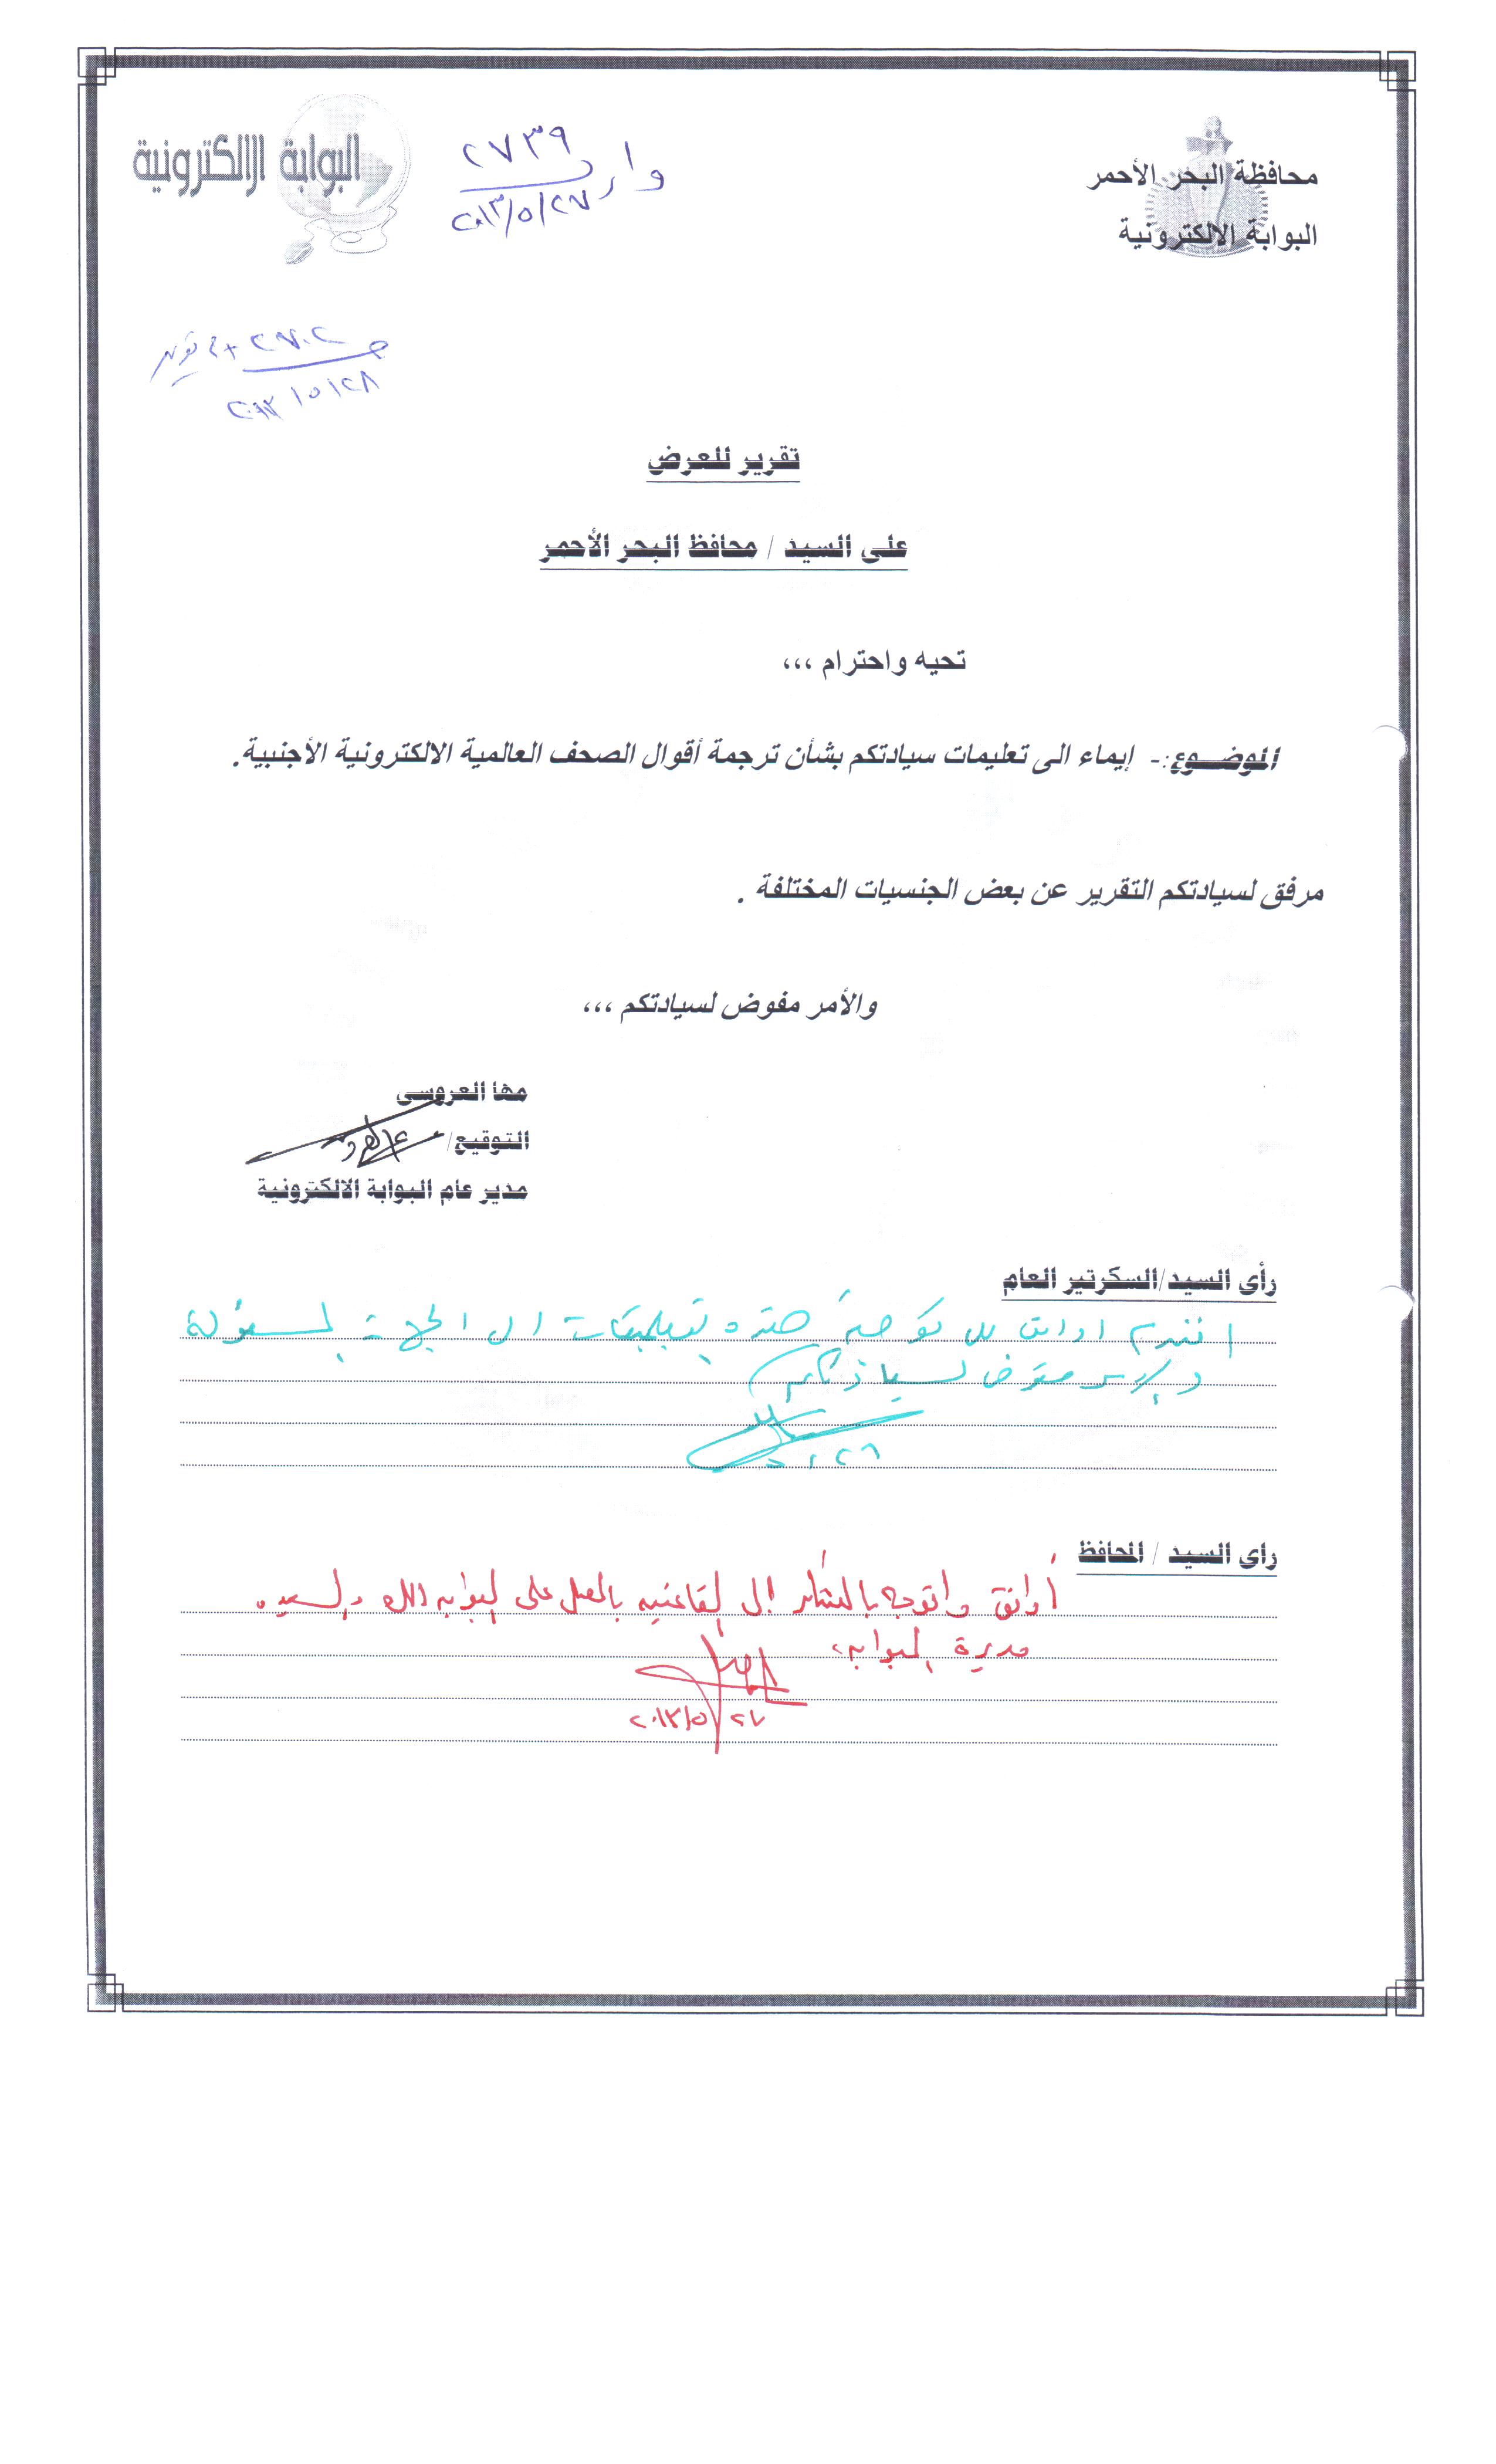 محافظة البحر الأحمر
البوابة الالكترونية
البوابة الالكترونية
وارد ٢٧٣٩
٢٠١٣/٥/٢٧
٢٨/٥/٢٠١٣
تقرير للعرض
على السيد / محافظ البحر الأحمر
تحيه واحترام ،،،
الموضــوع:- إيماء الى تعليمات سيادتكم بشأن ترجمة أقوال الصحف العالمية الالكترونية الأجنبية.
مرفق لسيادتكم التقرير عن بعض الجنسيات المختلفة .
والأمر مفوض لسيادتكم ،،،
مها العروسى
التوقيع/
مدير عام البوابة الالكترونية
رأى السيد/السكرتير العام
والأمر مفوض لسيادتكم
راى السيد / المحافظ
أوافق وأتوجه بالشكر إلى القائمين بالعمل على البوابه والسيده
مديرة البوابه
٢٠١٣/٥/٢٧